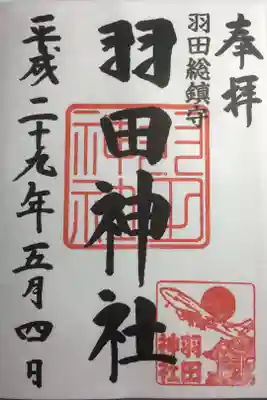 奉拝
羽田総鎮守
羽田神社
平成二十九年五月四日
羽田
神社